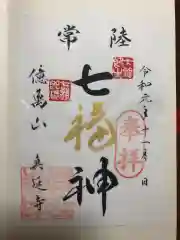 常 陸
令和元年十一月 日
奉拝
七福神
億萬山 真延寺